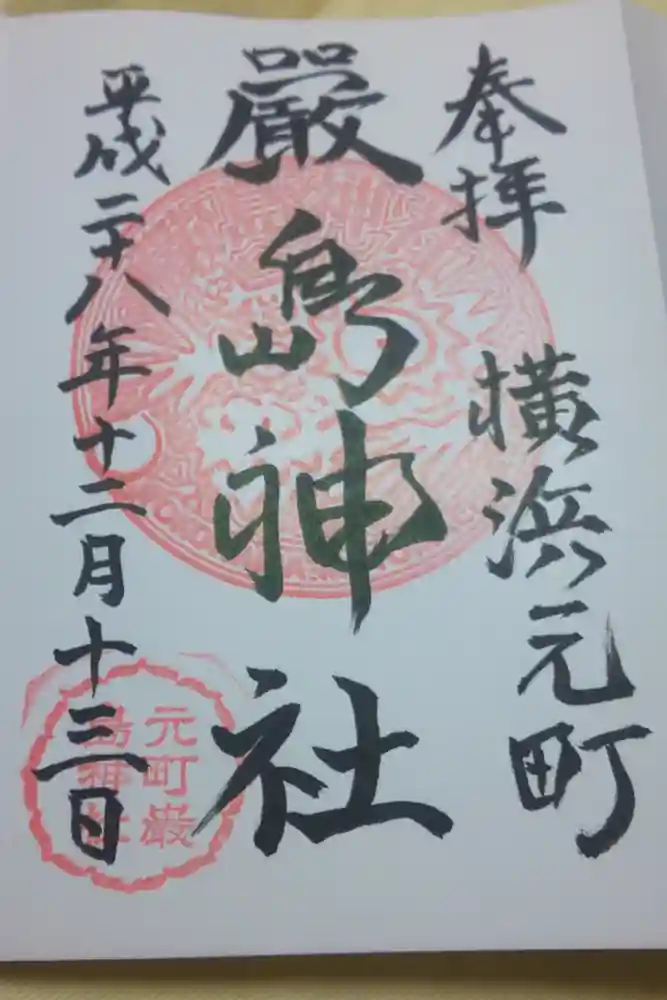 奉拝 横浜元町
嚴島神社
平成二十八年十二月十三日
元町嚴
島神社